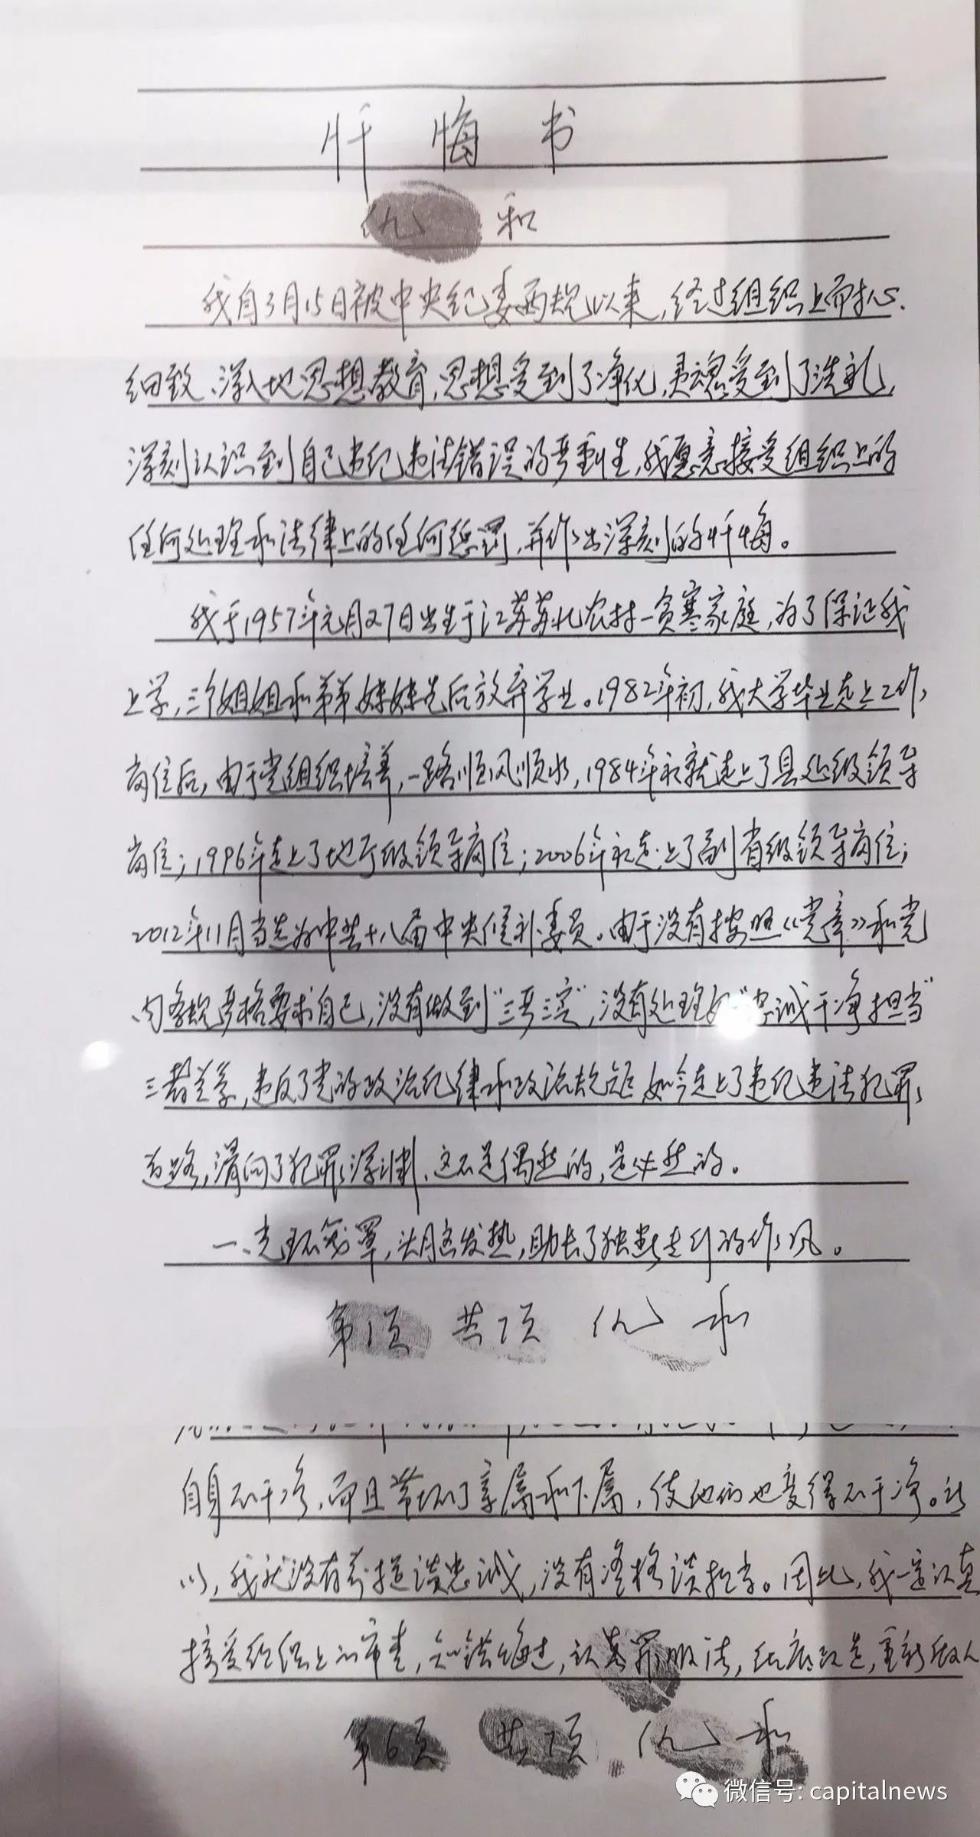 忏悔书
仇和
我自3月15日被中央纪委两规以来,经过组织上耐心、
细致、深入地思想教育,思想受到了净化,灵魂受到了洗礼,
深刻认识到自己违纪违法错误的严重性,我愿意接受组织上的
任何处理和法律上的任何惩罚,并作出深刻的忏悔。
我于1957年元月27日出生于江苏苏北农村一贫寒家庭,为了保证我
上学,三个姐姐和弟弟妹妹先后放弃学业。1982年初,我大学毕业走上工作
岗位后,由于党组织培养,一路顺风顺水,1984年就走上了县处级领导
岗位;1996年走上了地厅级领导岗位;2006年走上了副省级领导岗位;
2012年11月当选为中共十八届中央候补委员。由于没有按照《党章》和党
内条规严格要求自己,没有做到"三严三实",没有处理好"忠诚干净担当"
三者关系,违反了党的政治纪律和政治规矩,如今走上了违纪违法犯罪
道路,滑向了犯罪深渊,这不是偶然的,是必然的。
一、光环笼罩,头脑发热,助长了独断专行的作风。
第1页 共7页 仇和
自身不干净,而且带坏了亲属和下属,使他们也变得不干净。所
以,我就没有前提谈忠诚,没有资格谈担当。因此,我一定认真
接受组织上的审查,知错悔过,认罪服法,彻底改造,重新做人
第6页 共7页 仇和
微信号: capitalnews